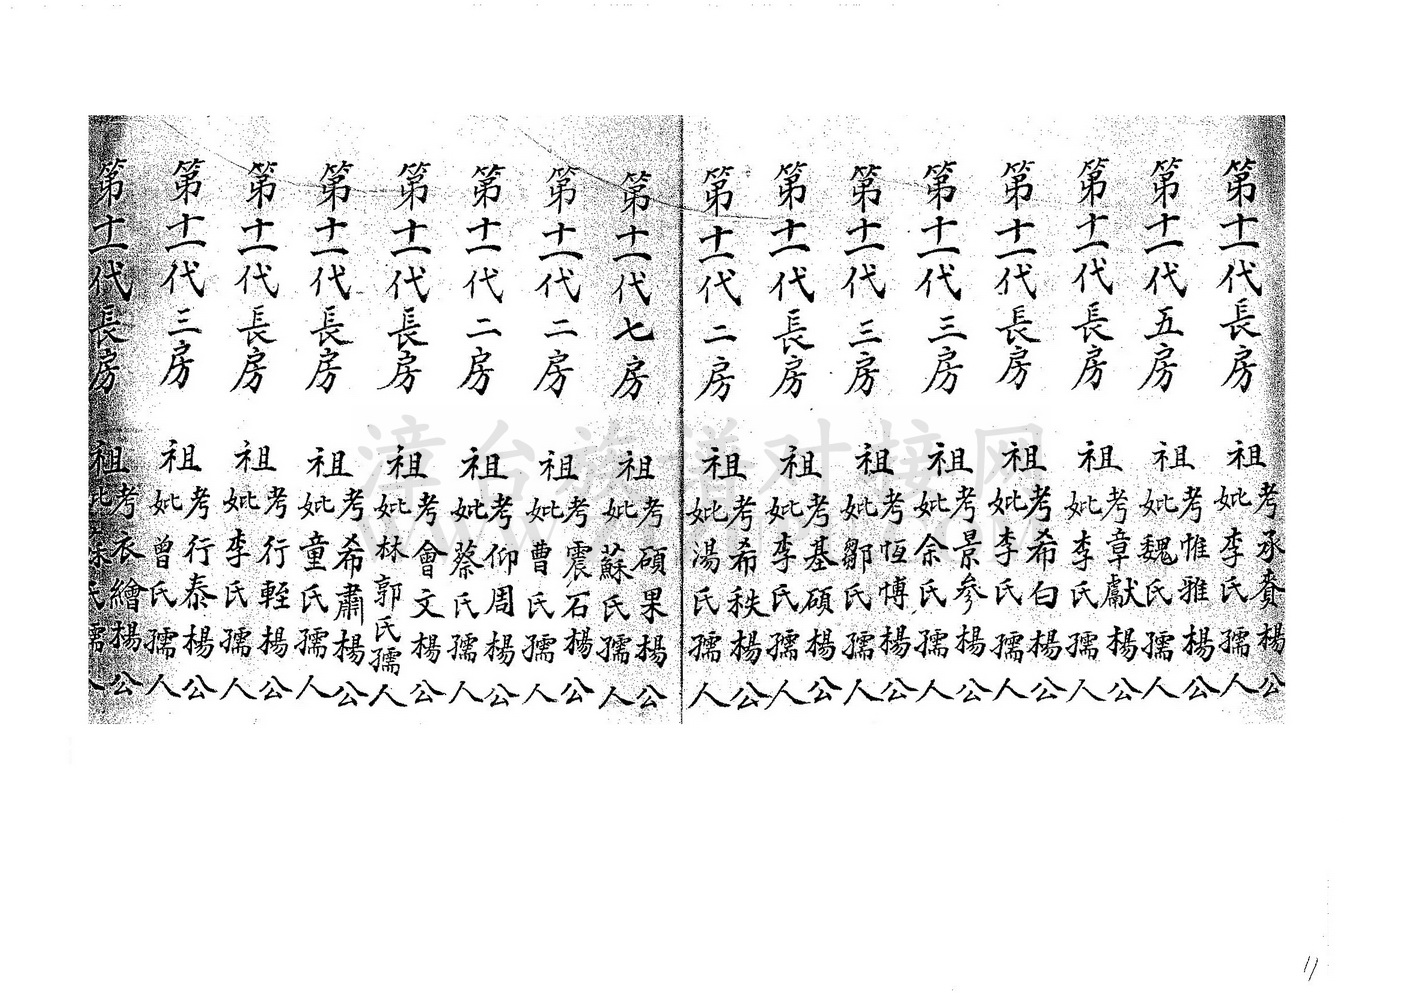 第十一代長房 祖考承賚楊公
妣李氏孺人
第十一代五房 祖考惟雅楊公
妣魏氏孺人
第十一代長房 祖考章獻楊公
妣李氏孺人
第十一代長房 祖考希白楊公
妣李氏孺人
第十一代三房 祖考景參楊公
妣余氏孺人
第十一代三房 祖考恆博楊公
妣鄒氏孺人
第十一代長房 祖考基碩楊公
妣李氏孺人
第十一代二房 祖考希秩楊公
妣湯氏孺人
第十一代七房 祖考碩果楊公
妣蘇氏孺人
第十一代二房 祖考震石楊公
妣曹氏孺人
第十一代二房 祖考仰周楊公
妣蔡氏孺人
第十一代長房 祖考會文楊公
妣林郭氏孺人
第十一代長房 祖考希肅楊公
妣童氏孺人
第十一代長房 祖考行輊楊公
妣李氏孺人
第十一代三房 祖考行泰楊公
妣曾氏孺人
第十一代長房 祖考衣繪楊公
妣蘇氏孺人
漳台族譜对接网
11